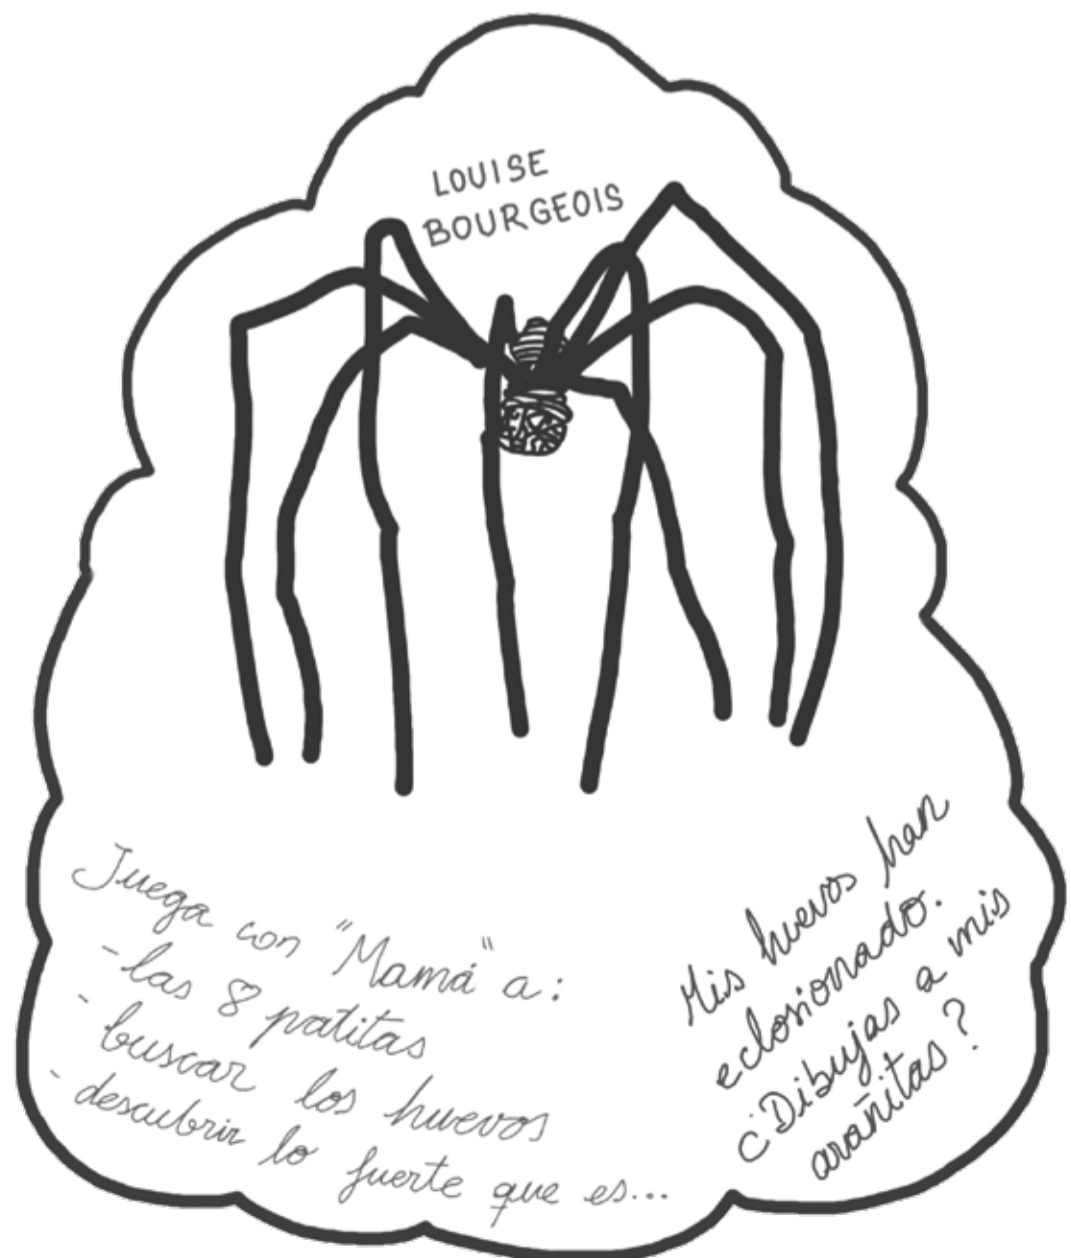 LOUISE
BOURGEOIS
Juega con "Mamá" a:
- las 8 patitas
- buscar los huevos
- descubrir lo fuerte que es...
Mis huevos han
eclosionado.
¿Dibujas a mis
arañitas?